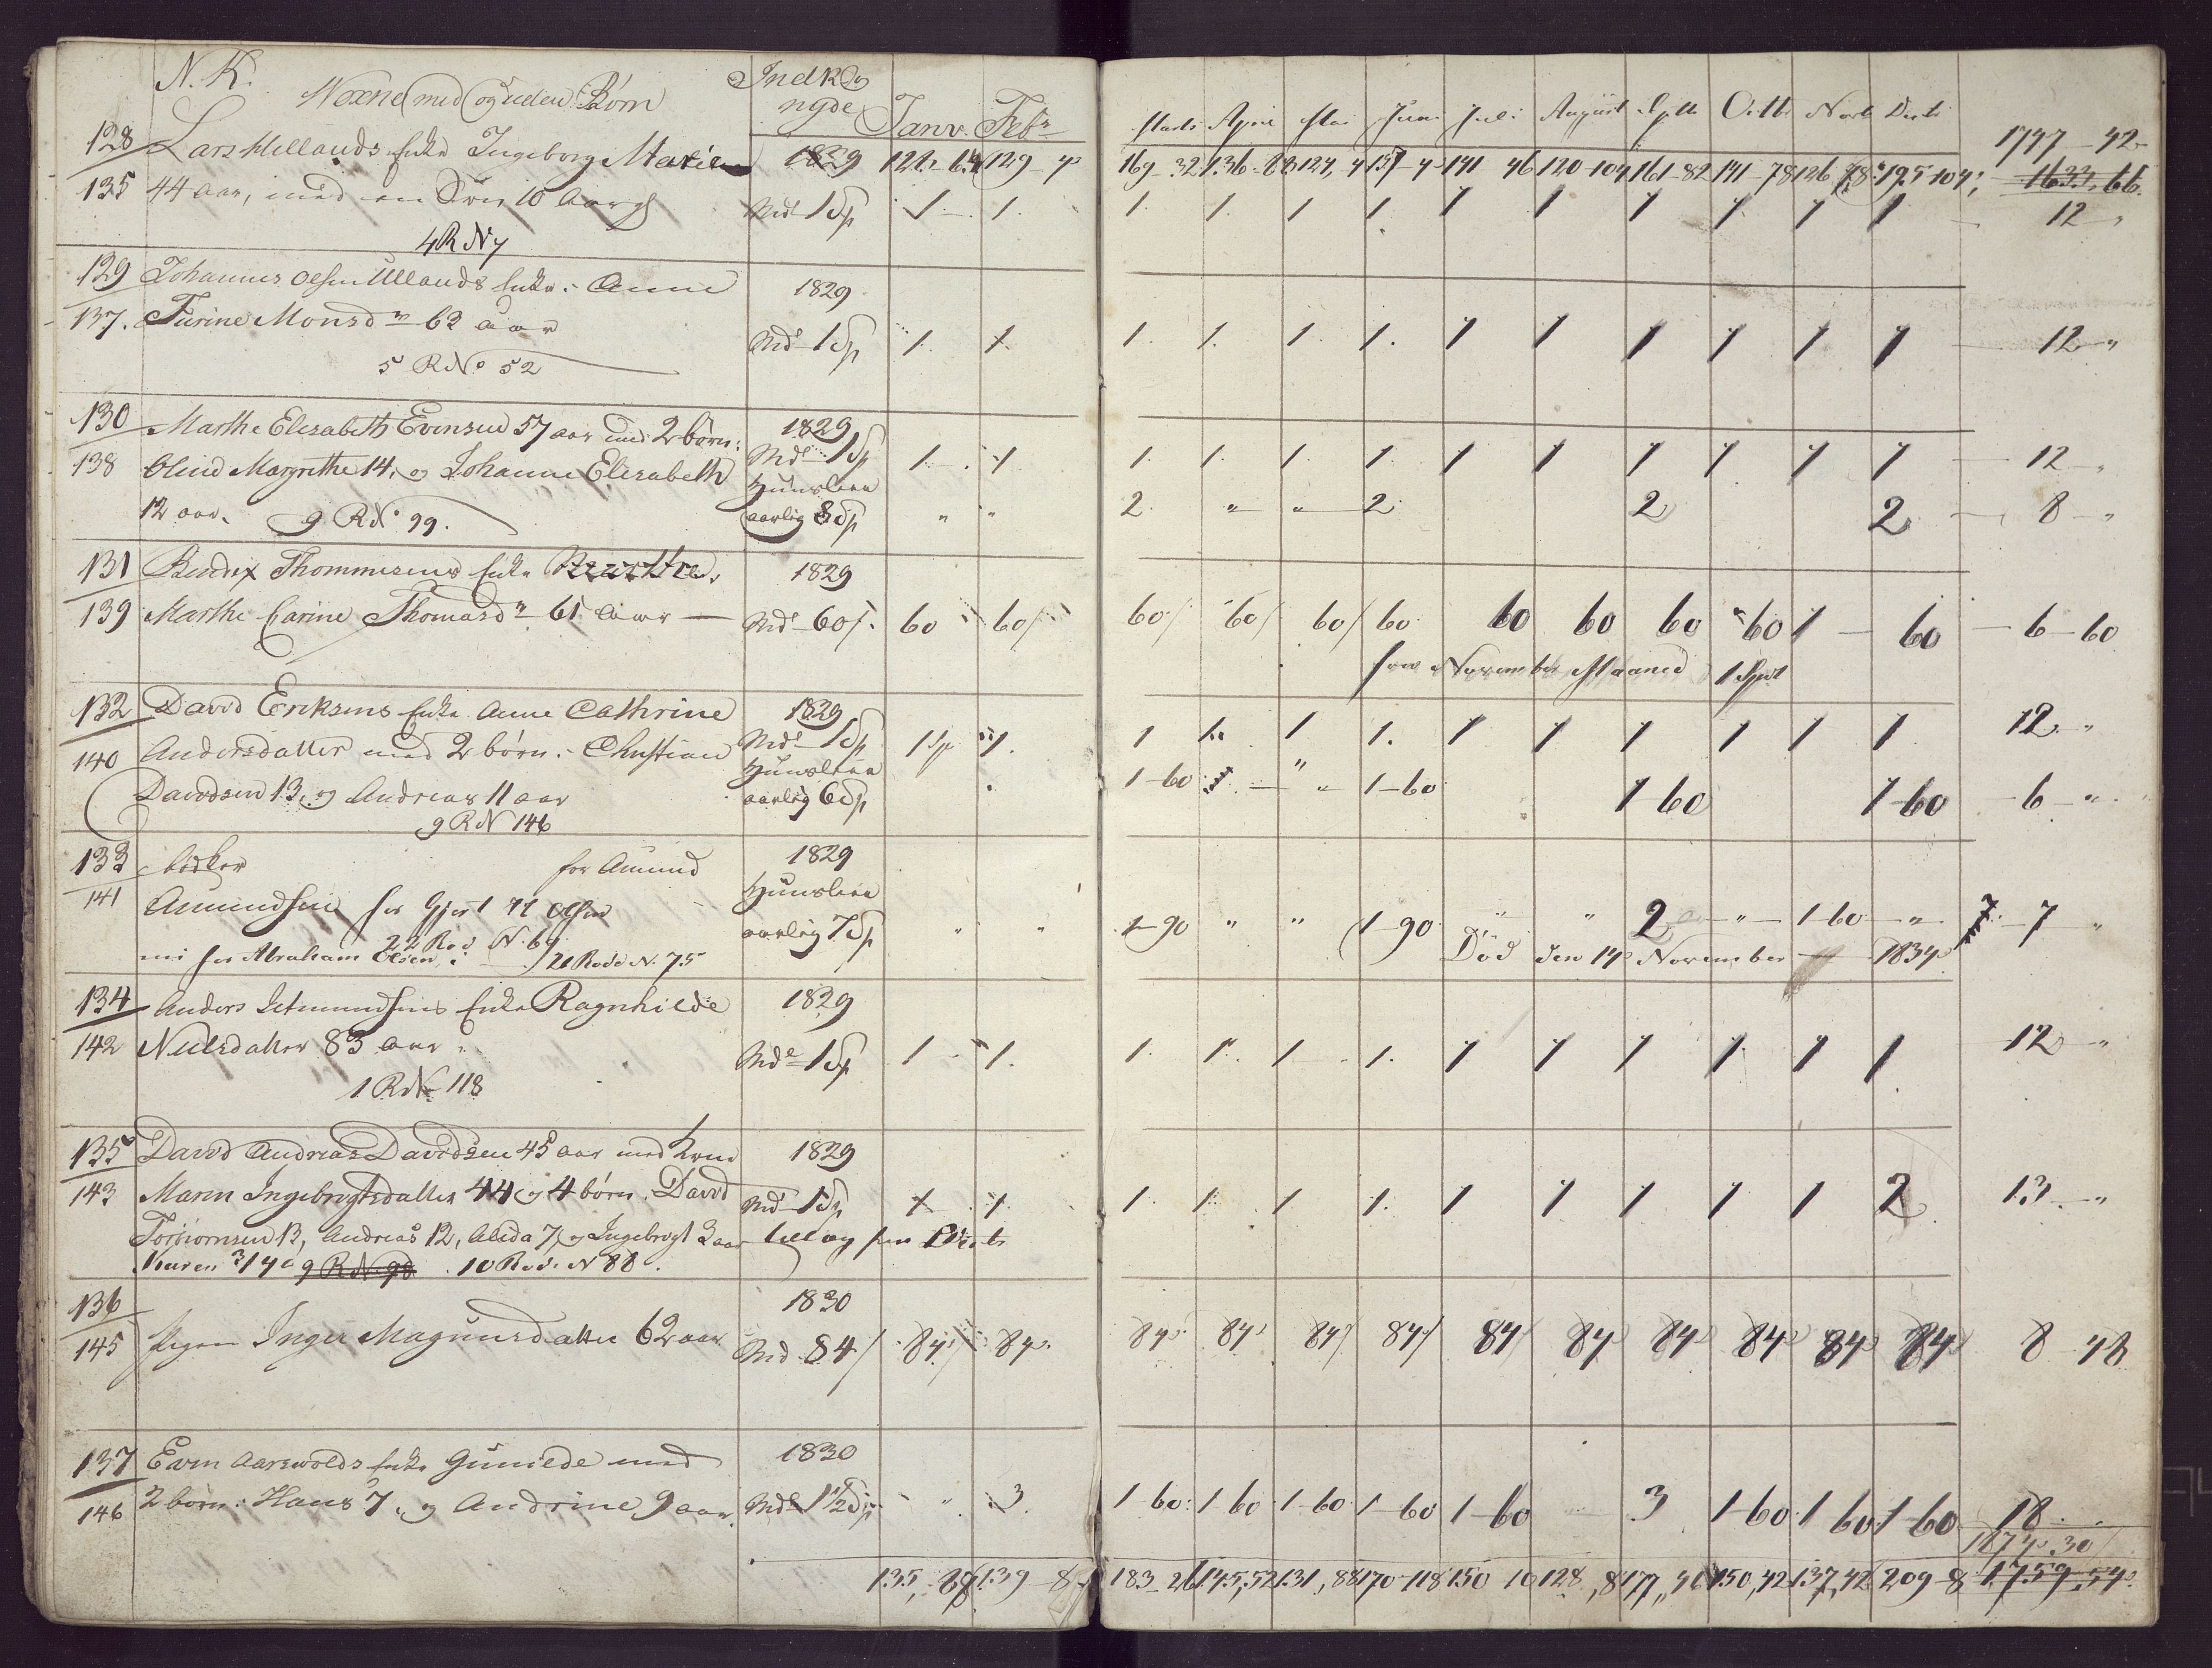 N. K. Voxne med og uden Børn Indk og
nyde Janv. Febr Marts April Mai Juni Juli August Sept Octb Novb Decb
1747 - 42
128 Lars Hellands Enke Ingeborg Marie 1829 129 - 4 169 - 32 136 - 88 124, 4 157 - 4 141 46 120 104 161 - 82 141 - 78 126 78 195 - 104 1633, 66.
135 44 aar, med en Søn 10 Aar Md 1 Sp 1 1. 1. 1. 1 1. 1 1 1 1 1 1 12 "
4 R N 7
129 Johannes Olsen Ullands Enke: Anne 1829
137. Turine Monsdr 63 aar Md 1 Sp 1. 1. 1. 1. 1. 1. 1 1 1 1 1 1 12 "
5 R No 52
130 Marthe Elisabeth Evensen 57 aar med 2 børn: 1829
138 Oline Margrethe 14, og Johanne Elisabeth Md 1 Sp 1 1 1. 1. 1. 1. 1 1 1 1 1 1 12 "
Huusleie
12 aar. 9 R No 99. aarlig 8 Sp " " 2. " " 2 2 2 8 "
131 Bendix Thommesens Enke 1829
139 Marthe Carine Thomasdr 61 Aar Md 60/. 60 60/ 60/ 60/ 60/ 60 60 60 60 60 1 60 6 - 60
fra November Maaned 1 Spd
132 David Eriksens Enke Anne Cathrine 1829
140 Andersdatter med 2 børn: Christian Md 1 Sp 1 Sp 1. 1 1. 1 1. 1 1 1 1 1 1 12. "
Huusleie
Davidsen 13, og Andreas 11 aar aarlig 6 Sp 1 - 60 " " 1 - 60 1 60 1 - 60 6 - "
9 R N 146
133 for Amund 1829
141 Amundsen for Gjert Olsen Huusleie
22 Rod N. 69 aarlig 7 Sp " " 1 - 90 " " 1 90 " " 2 " 1 - 60 " 7 "
for Abraham Olsen 21 Rode N. 75 Død den 14 November 1834
134 Anders Enke Ragnhilde 1829
142 Nielsdatter 83 aar Md 1 Sp 1 1. 1. 1. 1 1. 1 1 1 1 1 1 12 "
1 R No 118
135 David Andreas Davidsen 45 aar med Kone 1829
143 Maren Ingebregtsdatter 44 og 4 børn. David Md 1 Sp 1 1. 1. 1. 1 1. 1 1 1 1 1 2 13. "
Torbiørnsen 13, Andreas 12, Alida 7, og Ingebregt 3 aar
9 R N 98 10 Rode N 88.
136 1830
145 Pigen Inger Magnusdatter 62 aar Md 84/ 84/ 84. 84 84 84/ 84/ 84/ 84 84 84 84 84 8 48
137 Even Aarsvolds Enke Gunilde med 1830
146 2 børn: Hans 7, og Andrine 9 aar. Md 1 1/2 Sp " 3. 1 - 60 1 60 1 - 60 1 - 60 1 - 60 3 1 - 60 1 60 1 - 60 18
1874, 30/
135, 139 - 183 - 26 145, 52 131, 88 170 - 118 150 10 128, 8 177, 150, 42 137, 42 209 - 8 1759, 54.